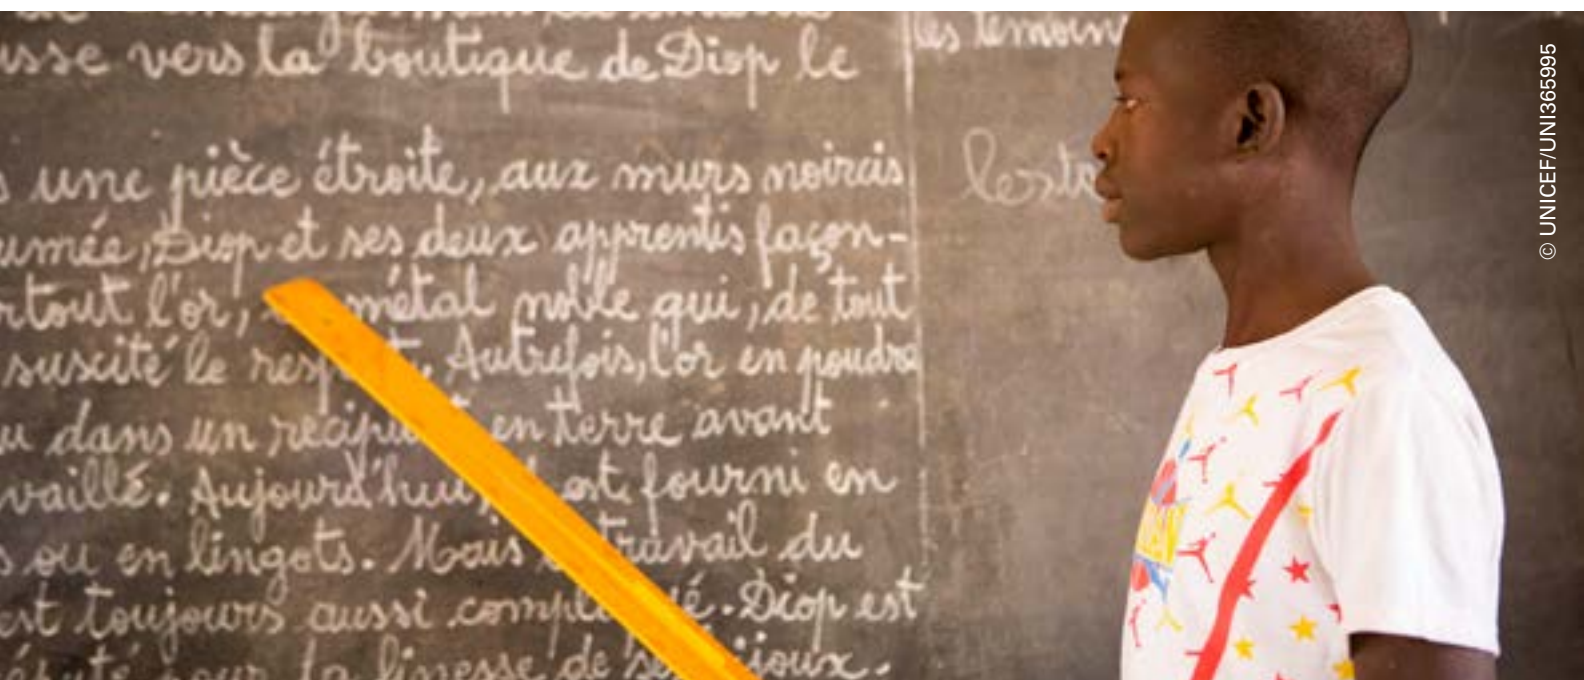 usse vers la boutique de Diop le
une pièce étroite, aux murs noircis
umée, Diop et ses deux apprentis façon-
rtout l'or, métal noble qui, de tout
suscité le respect, Autrefois, l'or en poudre
dans un récipient en terre avant
vaillé. Aujourd'hui, est fourni en
ou en lingots. Mais travail du
est toujours aussi compliqué. Diop est
pour la finesse de ses bijoux.
les témoins
© UNICEF/UNI365995